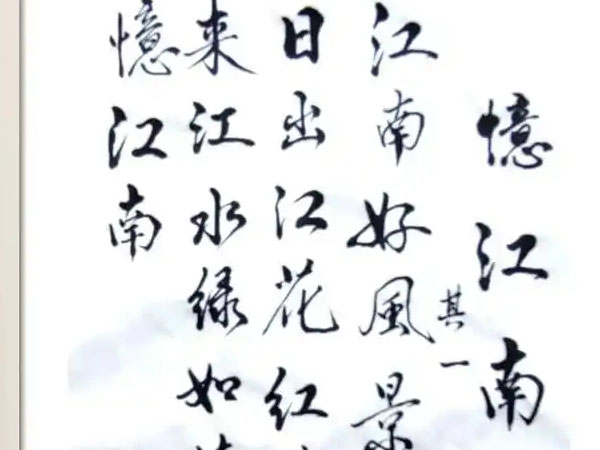 憶江南
其一
江南好風景
日出江花红
来江水绿如
憶江南